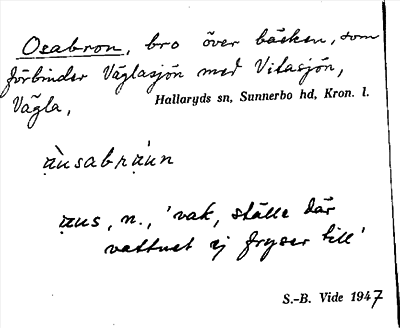 Osabron, bro över bäcken, som
förbinder Väglasjön med Vitasjön,
Vägla, Hallaryds sn, Sunnerbo hd, Kron. l.
a̤ùsabra̤ùn
a̤us, n., 'vak, ställe där
vattnet ej fryser till'
S.-B. Vide 1947